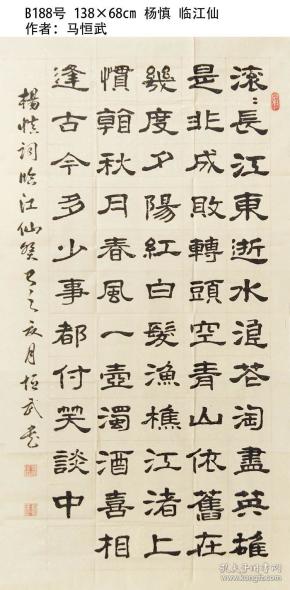 B188号 138×68cm 杨慎 临江仙
作者：马恒武
滚〻長江東逝水浪花淘盡英雄
是非成敗轉頭空青山依舊在
幾度夕陽紅白髮漁樵江渚上
慣看秋月春風一壺濁酒喜相
逢古今多少事都付笑談中
楊慎詞臨江仙癸巳之夏月恒武書
孔夫子旧书网